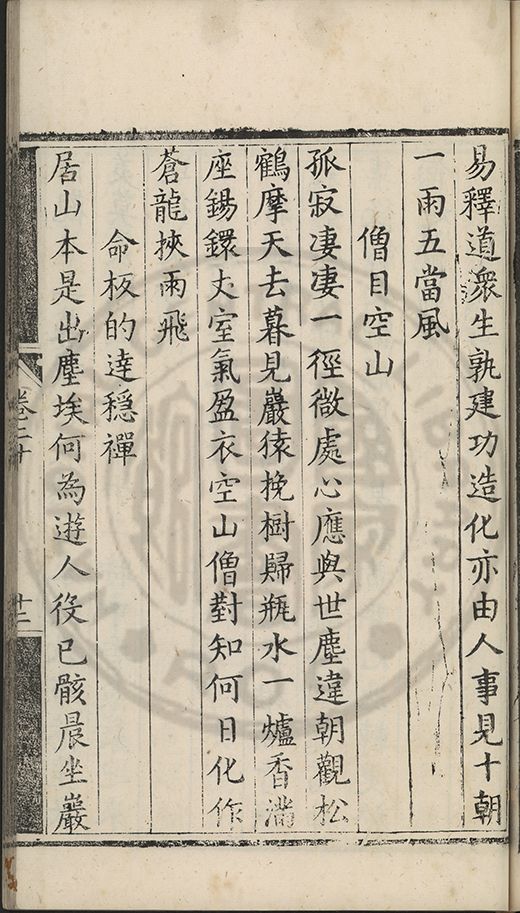 易釋道衆生孰建功造化亦由人事見十朝
一雨五當風
僧目空山
孤寂凄凄一徑微處心應與世塵違朝觀松
鶴摩天去暮見巖猿挽樹歸瓶水一爐香满
座錫鐶丈室氣盈衣空山僧對知何日化作
蒼龍挾雨飛
命板的達穩禪
居山本是出塵埃何為遊人役已骸晨坐巖
卷二十
十二